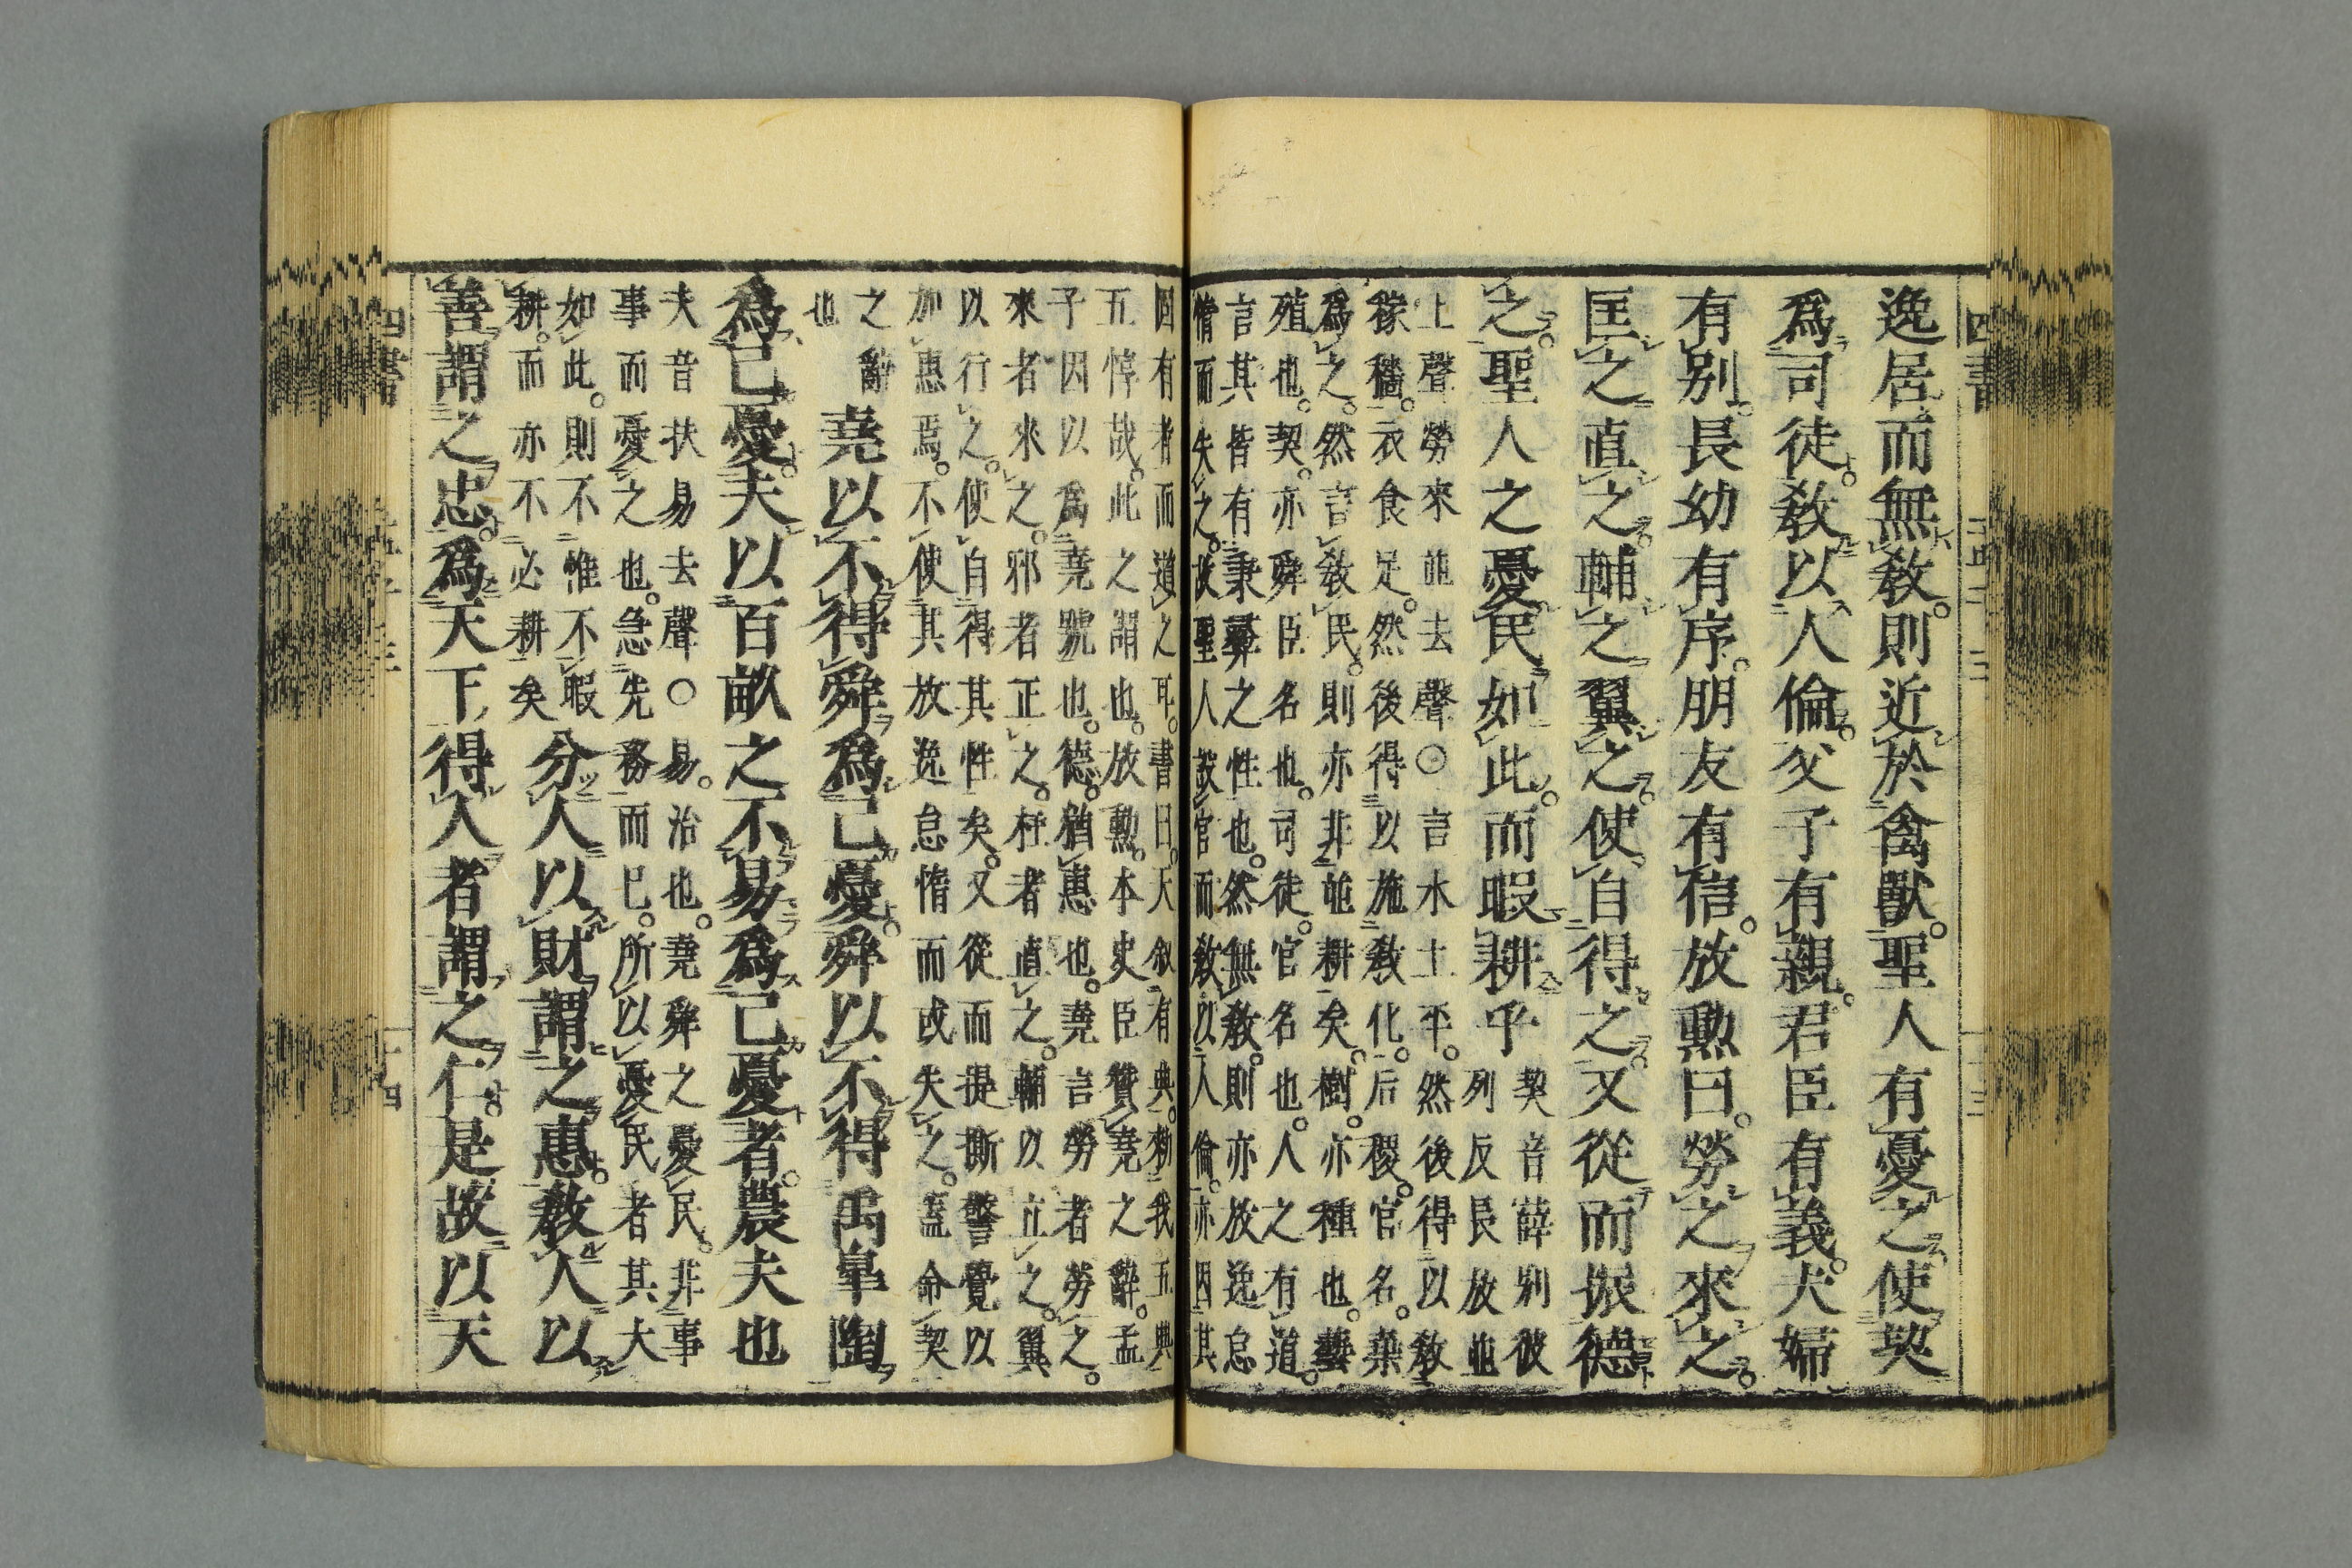 四書
逸居而無教。則近於禽獸。聖人有憂之使契
爲司徒。教以人倫。父子有親。君臣有義。夫婦
有別。長幼有序。朋友有信。放勳曰。勞之來之。
匡之直之。輔之翼之。使自得之。又從而振德
之。聖人之憂民如此。而暇耕乎
契音薛別彼
列反長放並
上聲勞來並去聲○言水土平。然後得以教
稼穡。衣食足。然後得以施教化。后稷。官名。棄
爲之。然言教民。則亦非並耕矣。樹。亦種也。藝。
殖也。契。亦舜臣名也。司徒。官名也。人之有道。
言其皆有秉彝之性也。然無教。則亦放逸怠
惰而失之。故聖人設官而教以人倫。亦因其
固有者而道之耳。書曰。天叙有典。勑我五典
五惇哉。此之謂也。放勳。本史臣贊堯之辭。孟
子因以爲堯號也。德。猶惠也。堯言勞者勞之。
來者來之。邪者正之。枉者直之。輔以立之。翼
以行之。使自得其性矣。又從而提撕警覺以
加惠焉。不使其放逸怠惰而或失之。蓋命契
之辭
也
堯以不得舜爲己憂。舜以不得禹皐陶
爲己憂。夫以百畝之不易爲己憂者。農夫也
夫音扶易去聲○易。治也。堯舜之憂民。非事
事而憂之也。急先務而已。所以憂民者其大
如此。則不惟不暇
耕。而亦不必耕矣
分人以財謂之惠。教人以
善謂之忠。爲天下得人者謂之仁。是故以天
四書